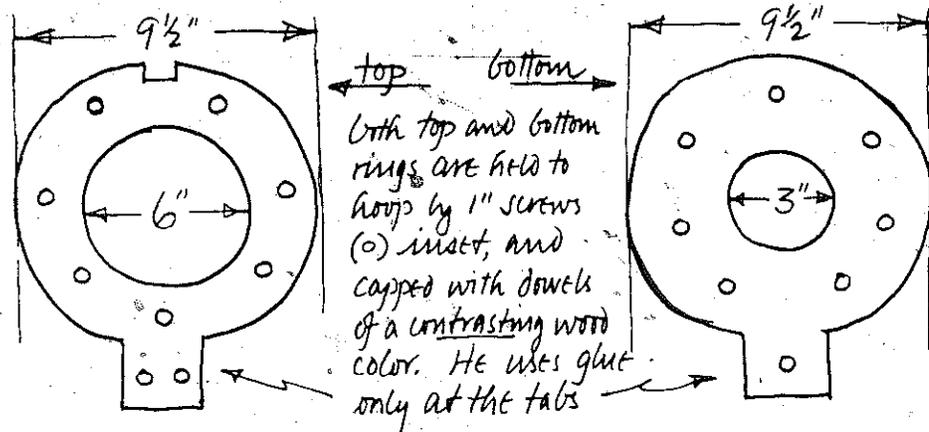 9½"
9½"
top bottom
both top and bottom
rings are held to
hoop by 1" screws
(o) inset, and
capped with dowels
of a contrasting wood
color. He uses glue
only at the tabs
6"
3"